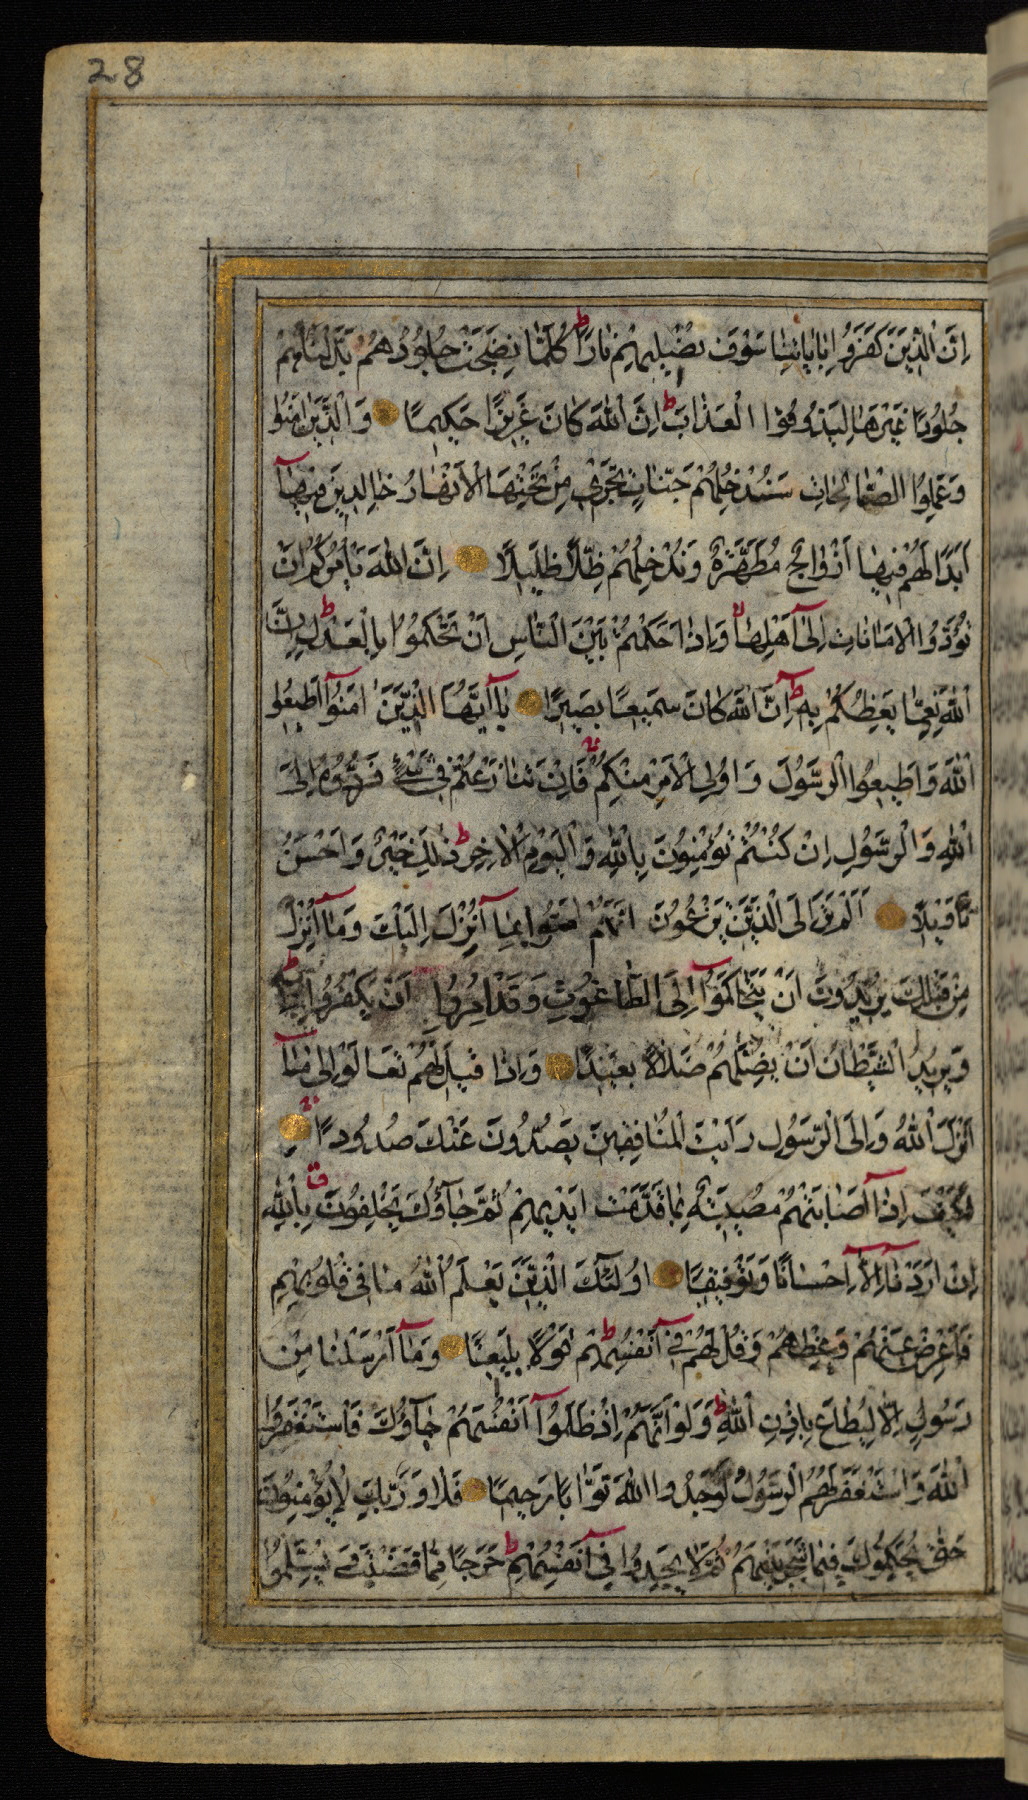 28
اِنَّ الَّذِينَ كَفَرُوا بِاٰيَاتِنَا سَوْفَ نُصْلِيهِمْ نَارًا ط كُلَّمَا نَضِجَتْ جُلُودُهُمْ بَدَّلْنَاهُمْ
جُلُودًا غَيْرَهَا لِيَذُوقُوا الْعَذَابَ ط اِنَّ اللّٰهَ كَانَ عَزِيزًا حَكِيمًا وَالَّذِينَ اٰمَنُوا
وَعَمِلُوا الصَّالِحَاتِ سَنُدْخِلُهُمْ جَنَّاتٍ تَجْرِي مِنْ تَحْتِهَا الْاَنْهَارُ خَالِدِينَ فِيهَآ
اَبَدًا لَهُمْ فِيهَا اَزْوَاجٌ مُطَهَّرَةٌ وَنُدْخِلُهُمْ ظِلًّا ظَلِيلًا اِنَّ اللّٰهَ يَأْمُرُكُمْ اَنْ
تُؤَدُّوا الْاَمَانَاتِ اِلٰٓى اَهْلِهَا لا وَاِذَا حَكَمْتُمْ بَيْنَ النَّاسِ اَنْ تَحْكُمُوا بِالْعَدْلِ ط اِنَّ
اللّٰهَ نِعِمَّا يَعِظُكُمْ بِهٖ ط اِنَّ اللّٰهَ كَانَ سَمِيعًا بَصِيرًا يَآ اَيُّهَا الَّذِينَ اٰمَنُوٓا اَطِيعُوا
اللّٰهَ وَاَطِيعُوا الرَّسُولَ وَاُولِي الْاَمْرِ مِنْكُمْ فَاِنْ تَنَازَعْتُمْ فِي شَيْءٍ فَرُدُّوهُ اِلَى
اللّٰهِ وَالرَّسُولِ اِنْ كُنْتُمْ تُؤْمِنُونَ بِاللّٰهِ وَالْيَوْمِ الْاٰخِرِ ط ذٰلِكَ خَيْرٌ وَاَحْسَنُ
تَأْوِيلًا اَلَمْ تَرَ اِلَى الَّذِينَ يَزْعُمُونَ اَنَّهُمْ اٰمَنُوا بِمَآ اُنْزِلَ اِلَيْكَ وَمَآ اُنْزِلَ
مِنْ قَبْلِكَ يُرِيدُونَ اَنْ يَتَحَاكَمُوٓا اِلَى الطَّاغُوتِ وَقَدْ اُمِرُوٓا اَنْ يَكْفُرُوا بِهٖ ط
وَيُرِيدُ الشَّيْطَانُ اَنْ يُضِلَّهُمْ ضَلَالًا بَعِيدًا وَاِذَا قِيلَ لَهُمْ تَعَالَوْا اِلٰى مَآ
اَنْزَلَ اللّٰهُ وَاِلَى الرَّسُولِ رَاَيْتَ الْمُنَافِقِينَ يَصُدُّونَ عَنْكَ صُدُودًا
فَكَيْفَ اِذَآ اَصَابَتْهُمْ مُصِيبَةٌ بِمَا قَدَّمَتْ اَيْدِيهِمْ ثُمَّ جَآؤُكَ يَحْلِفُونَ ق بِاللّٰهِ
اِنْ اَرَدْنَآ اِلَّآ اِحْسَانًا وَتَوْفِيقًا اُولٰئِكَ الَّذِينَ يَعْلَمُ اللّٰهُ مَا فِي قُلُوبِهِمْ
فَاَعْرِضْ عَنْهُمْ وَعِظْهُمْ وَقُلْ لَهُمْ فِيٓ اَنْفُسِهِمْ قَوْلًا بَلِيغًا وَمَآ اَرْسَلْنَا مِنْ
رَسُولٍ اِلَّا لِيُطَاعَ بِاِذْنِ اللّٰهِ ط وَلَوْ اَنَّهُمْ اِذْ ظَلَمُوٓا اَنْفُسَهُمْ جَآؤُكَ فَاسْتَغْفَرُوا
اللّٰهَ وَاسْتَغْفَرَ لَهُمُ الرَّسُولُ لَوَجَدُوا اللّٰهَ تَوَّابًا رَحِيمًا فَلَا وَرَبِّكَ لَا يُؤْمِنُونَ
حَتّٰى يُحَكِّمُوكَ فِيمَا شَجَرَ بَيْنَهُمْ ثُمَّ لَا يَجِدُوا فِيٓ اَنْفُسِهِمْ حَرَجًا مِمَّا قَضَيْتَ وَيُسَلِّمُوا